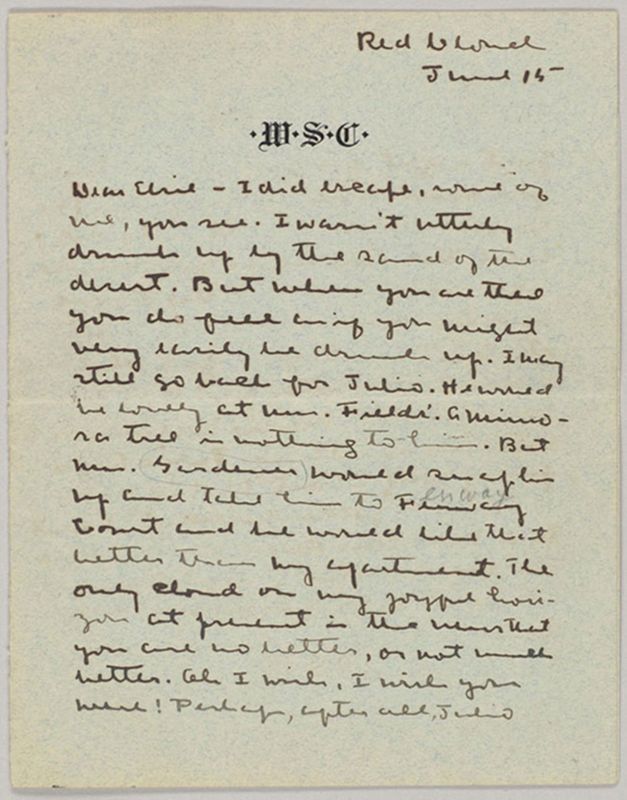 Red Cloud
June 15
·W·S·C·
Dear Elsie – I did escape, some of
me, you see. I wasn't utterly
drunk up by the sand of the
desert. But when you are there
you do feel as if you might
very easily be drunk up. I may
still go back for Julio. He would
be lovely at Mrs. Fields'. A mimo-
sa tree is nothing to him. But
Mrs. Gardener would snap him
up and take him to Fenway
enway
Court and he would like that
better than my apartment. The
only cloud on my joyful hori-
zon at present is the news that
you are no better, or not much
better. Oh I wish, I wish you
were! Perhaps, after all, Julio